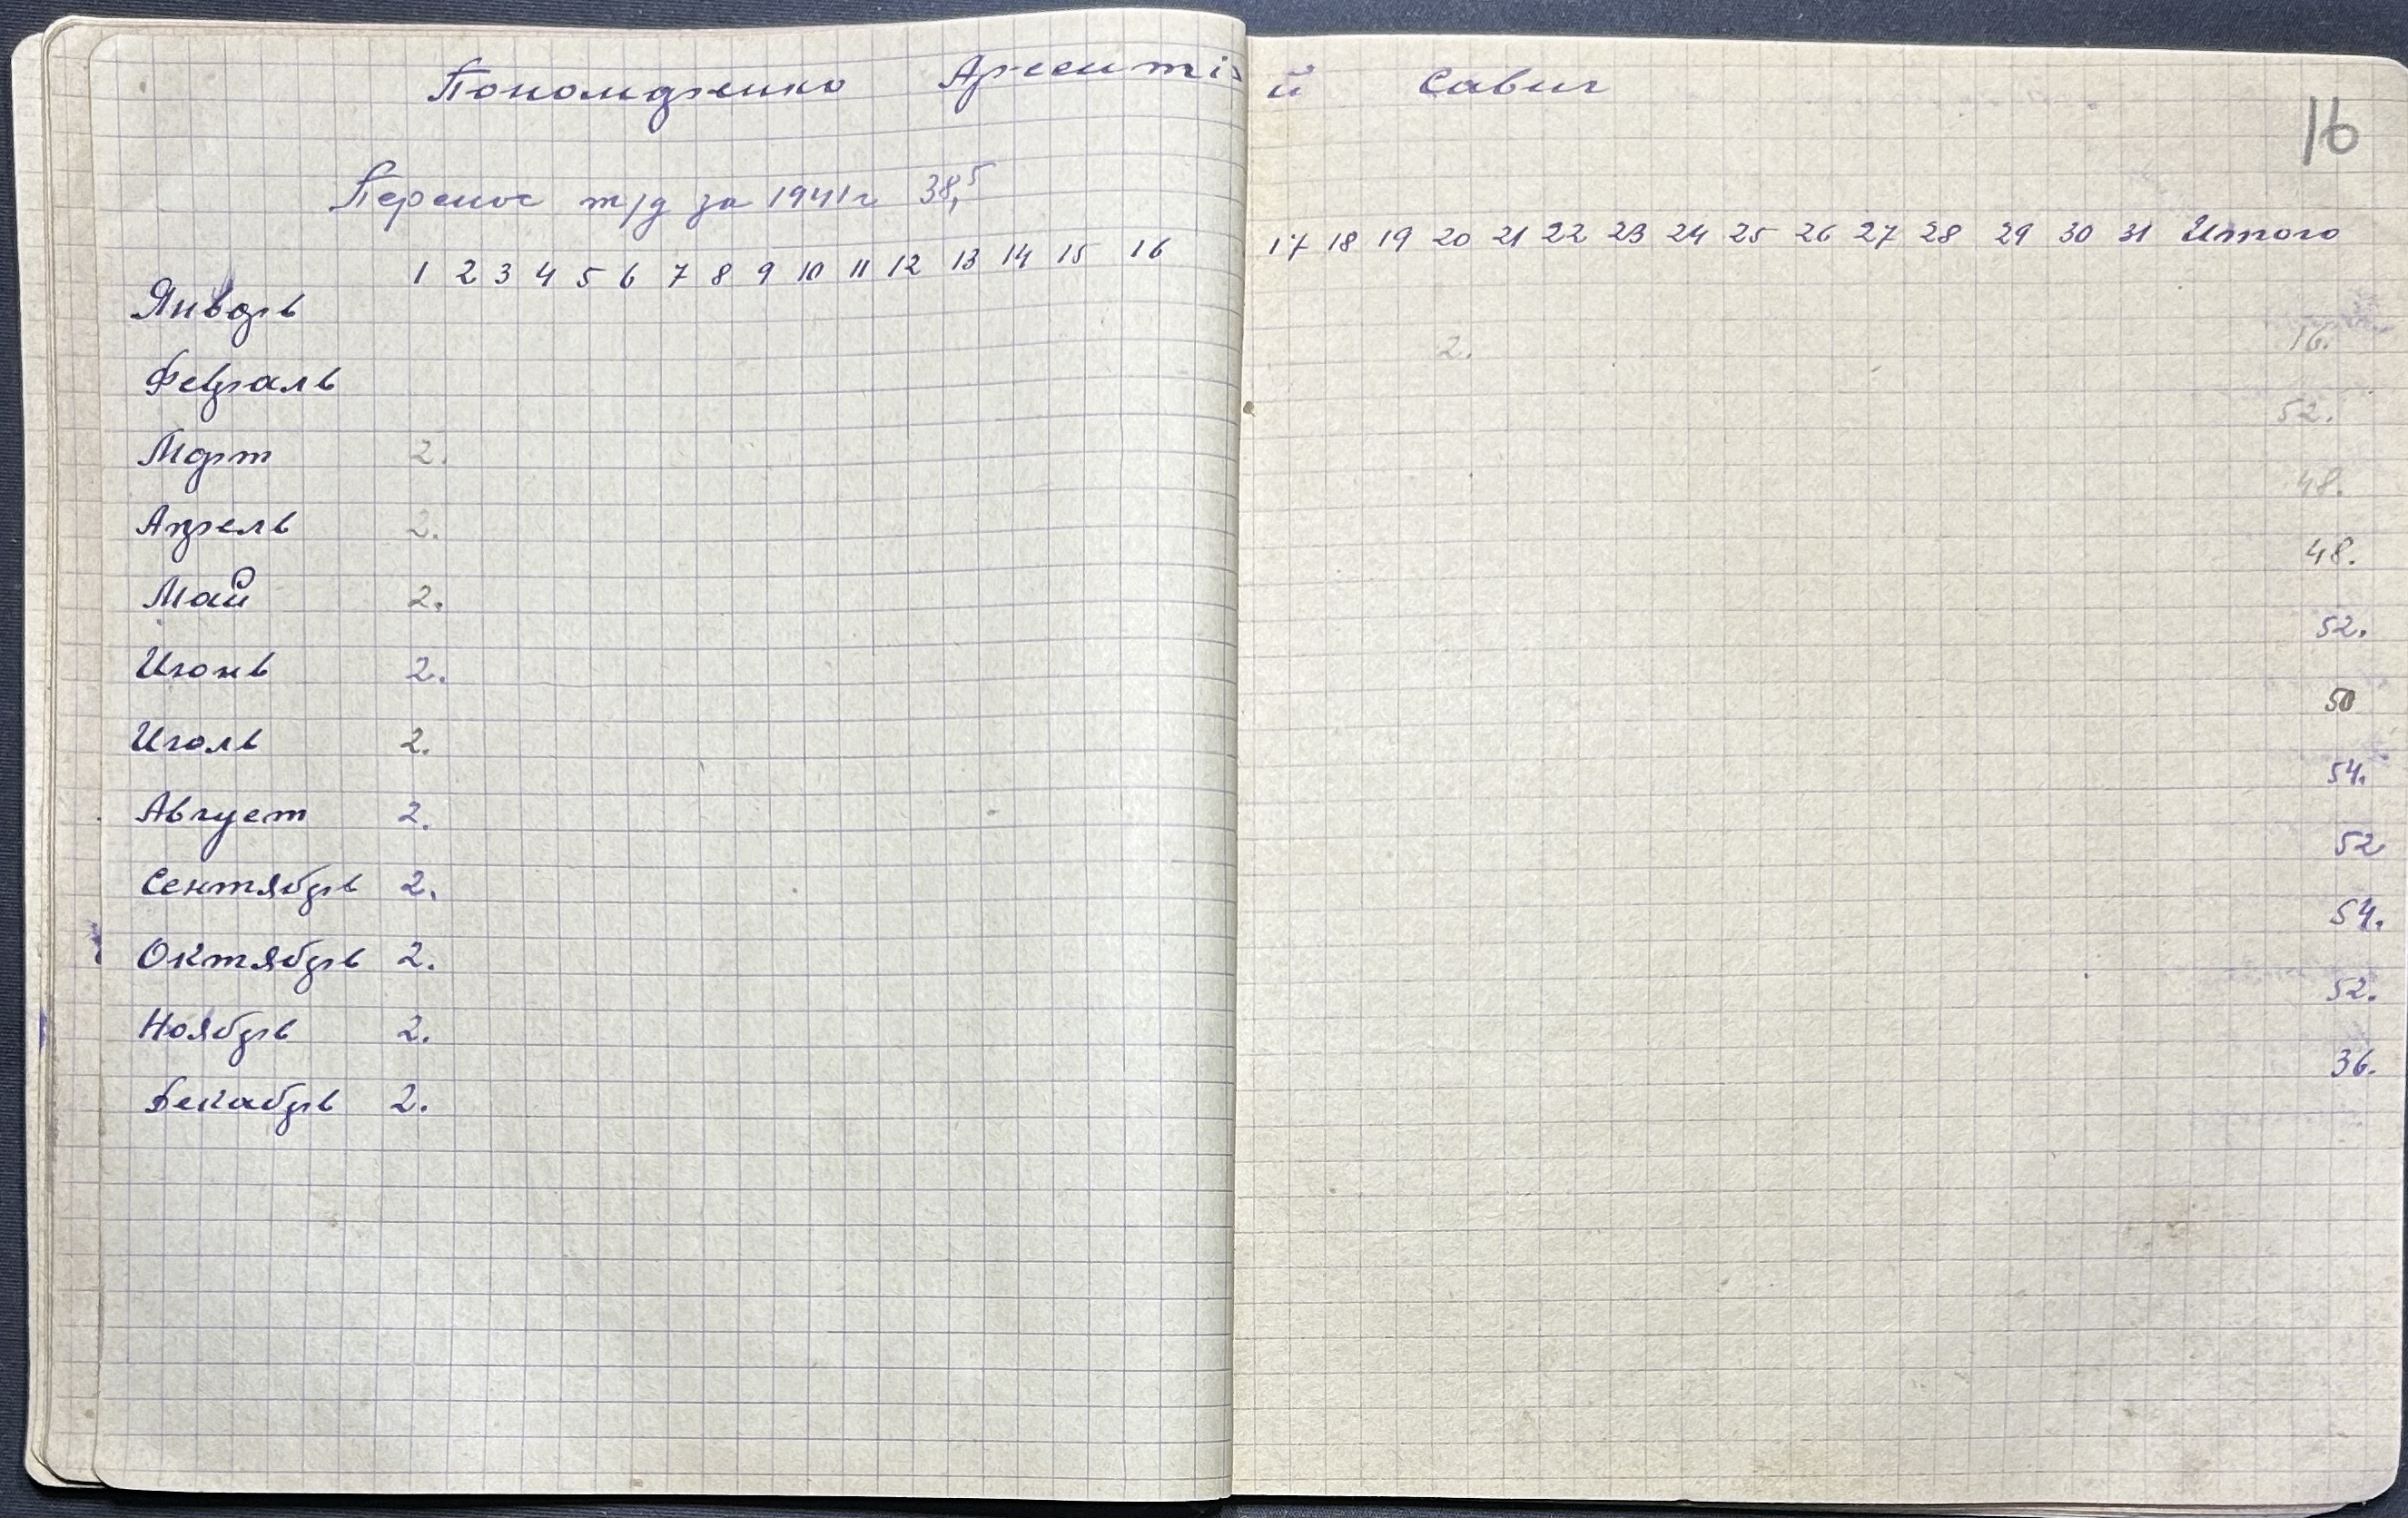 Пономаренко Арсентій Савич
16
Перенос т/д за 1941 г 38,5
1 2 3 4 5 6 7 8 9 10 11 12 13 14 15 16 17 18 19 20 21 22 23 24 25 26 27 28 29 30 31 Итого
Январь
Февраль 2. 16.
Март 2. 52.
Апрель 2. 48.
Май 2. 48.
Июнь 2. 52.
Июль 2. 50
Август 2. 54.
Сентябрь 2. 52
Октябрь 2. 54.
Ноябрь 2. 52.
Декабрь 2. 36.